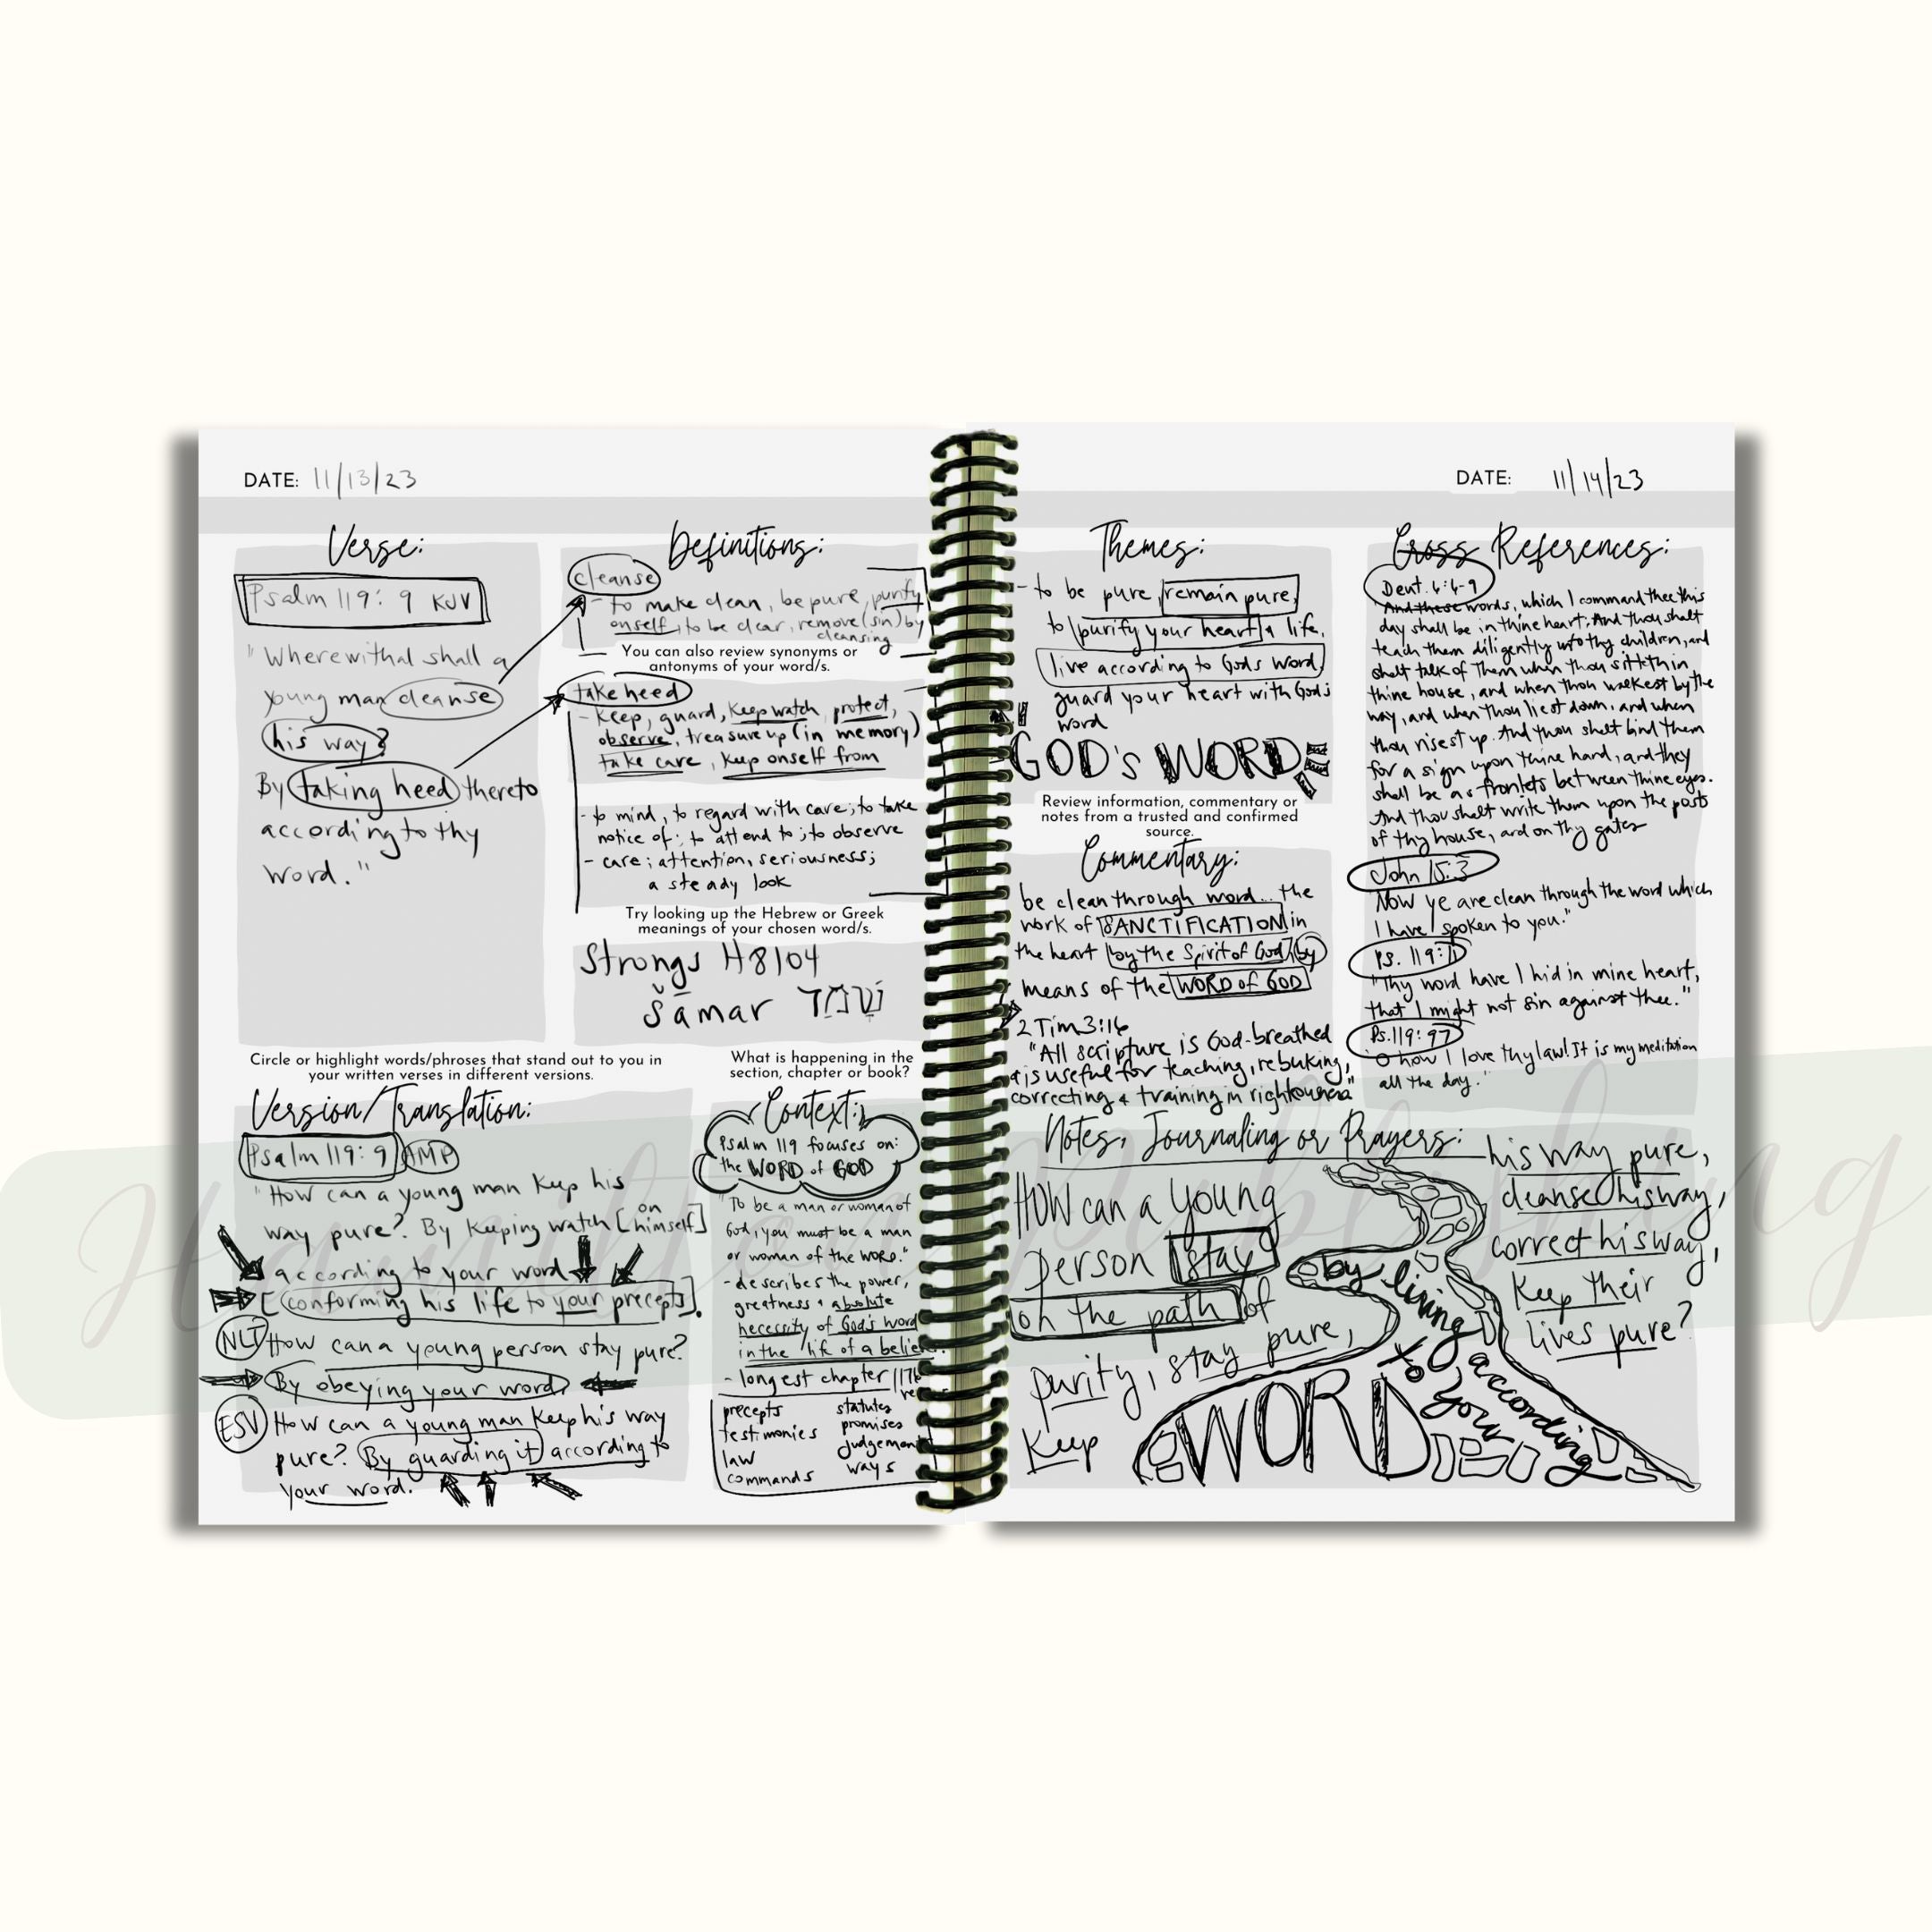 DATE: 11/13/23
Verse:
Psalm 119:9 KJV
"Wherewithal shall a
young man cleanse
his way?
By taking heed thereto
according to thy
word."
Definitions:
cleanse
- to make clean, be pure, purify
onself, to be clear, remove (sin) by
cleansing
You can also review synonyms or
antonyms of your word/s.
take heed
- Keep, guard, Keep watch, protect,
observe, treasure up (in memory)
take care, Keep onself from
- to mind, to regard with care; to take
notice of; to attend to; to observe
- care; attention, seriousness;
a steady look
Try looking up the Hebrew or Greek
meanings of your chosen word/s.
Strongs H8104
Šāmar שָׁמַר
Circle or highlight words/phrases that stand out to you in
your written verses in different versions.
Version/Translation:
Psalm 119:9 AMP
"How can a young man Keep his
way pure? By Keeping watch [on
himself]
according to your word
[conforming his life to your precepts].
NLT How can a young person stay pure?
By obeying your word.
ESV How can a young man Keep his way
pure? By guarding it according to
your word.
What is happening in the
section, chapter or book?
Context:
Psalm 119 focuses on:
the WORD of GOD
"To be a man or woman of
God, you must be a man
or woman of the WORD."
- describes the power,
greatness + absolute
necessity of God's word
in the life of a believer.
- longest chapter /176
precepts statutes
testimonies promises
law judgement
commands ways
DATE: 11/14/23
Themes:
- to be pure, remain pure,
to purify your heart & life,
live according to Gods word,
guard your heart with God's
word
GOD's WORD
Review information, commentary or
notes from a trusted and confirmed
source.
Commentary:
be clean through word... the
work of SANCTIFICATION in
the heart by the Spirit of God, by
means of the WORD of GOD
2 Tim 3:16
"All scripture is God-breathed
& is useful for teaching, rebuking,
correcting & training in righteousness"
Cross References:
Deut. 6:6-9
And these words, which I command thee this
day shall be in thine heart: And thou shalt
teach them diligently unto thy children, and
shalt talk of them when thou sittith in
thine house, and when thou walkest by the
way, and when thou liest down, and when
thou risest up. And thou shalt bind them
for a sign upon thine hand, and they
shall be as frontlets between thine eyes.
And thou shalt write them upon the posts
of thy house, and on thy gates
John 15:3
Now ye are clean through the word which
I have spoken to you."
Ps. 119:11
"Thy word have I hid in mine heart,
that I might not sin against thee."
Ps. 119:97
"O how I love thy law! It is my meditation
all the day."
Notes, Journaling or Prayers:
HOW can a young
person stay
on the path of
purity, stay pure,
Keep
his way pure,
cleanse his way,
correct his way,
Keep their
lives pure?
by living
according
to your
WORD
Hamilton Publishing